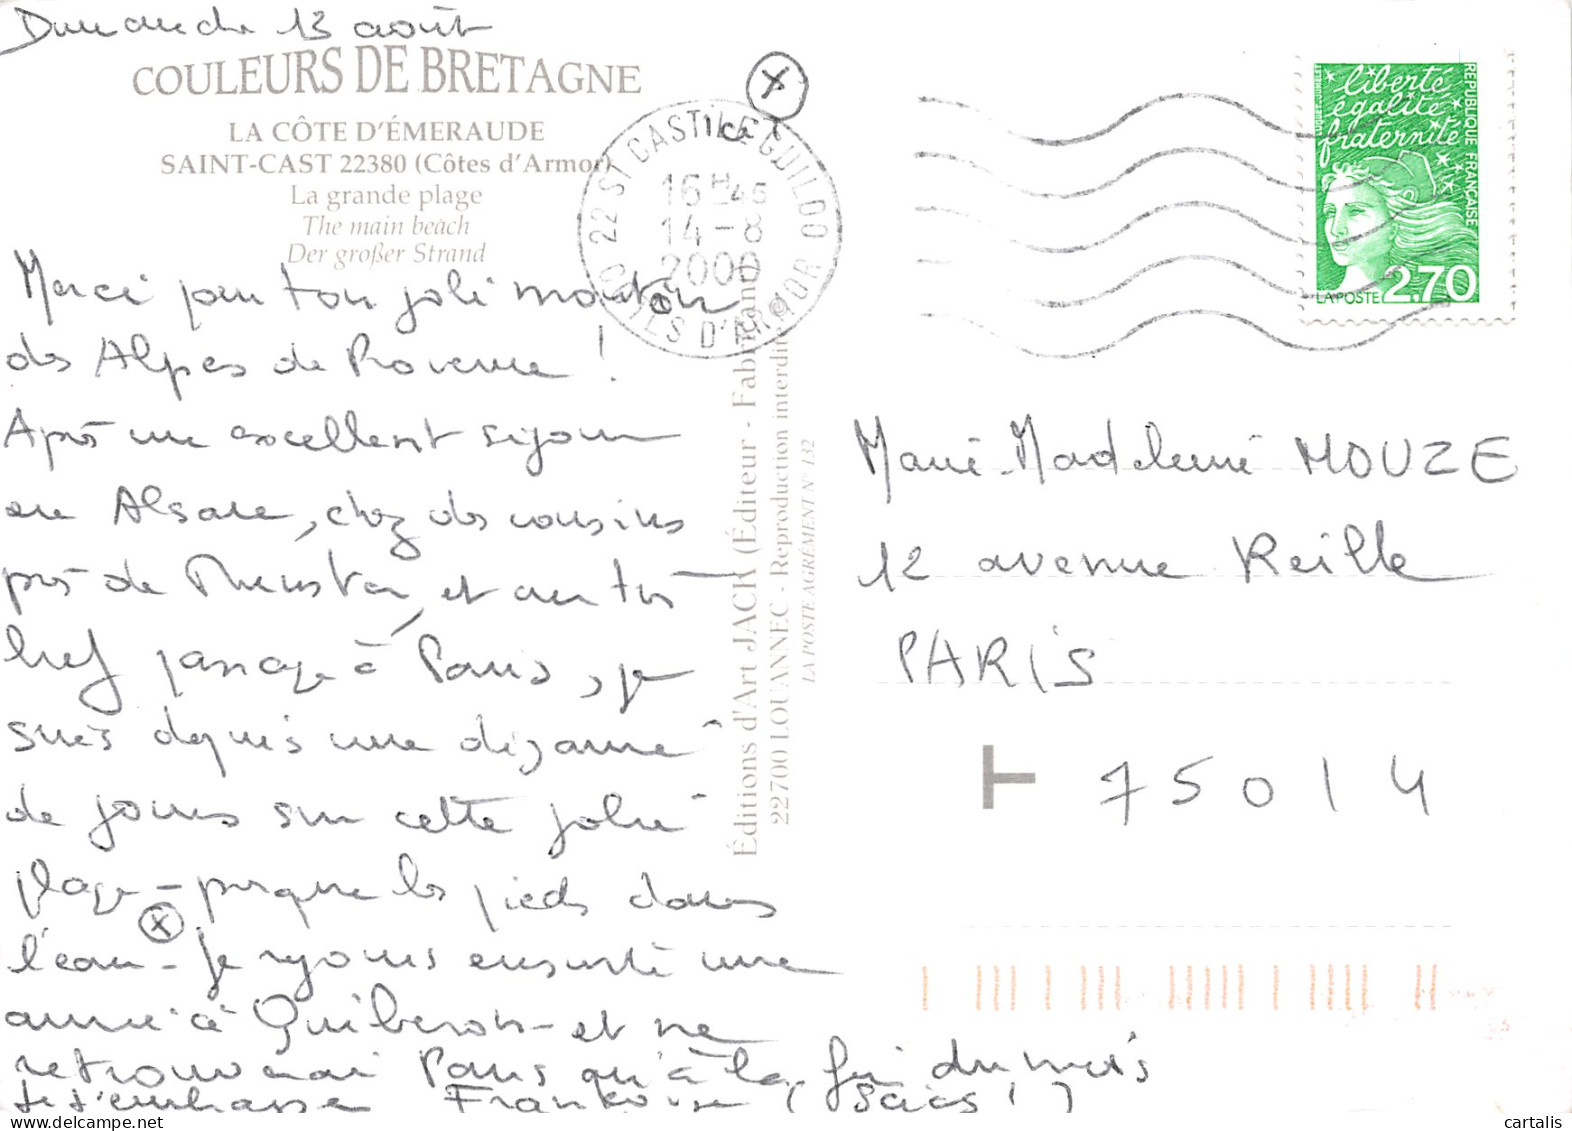 Dimanche 13 août
COULEURS DE BRETAGNE
LA CÔTE D'ÉMERAUDE
SAINT-CAST 22380 (Côtes d'Armor)
La grande plage
The main beach
Der großer Strand
Merci pour ton joli mouton
des Alpes de Provence !
Après un excellent séjour
en Alsace, chez des cousins
près de Munster, et un très
bref passage à Paris, je
suis depuis une dizaine
de jours sur cette jolie
plage - presque les pieds dans
l'eau - Je rejoins ensuite une
amie à Quiberon - et ne
retrouverai Paris qu'à la fin du mois
Je t'embrasse Françoise
X
ici
22 ST CAST LE GUILDO
16H45
14-8
2000
COTES D'ARMOR
Éditions d'Art JACK (Éditeur - Fabricant)
22700 LOUANNEC - Reproduction interdite
LA POSTE AGRÉMENT N° 132
liberté
égalité
fraternité
RÉPUBLIQUE FRANÇAISE
LA POSTE 2.70
Marie-Madeleine MOUZE
12 avenue Reille
PARIS
T 75014
cartalis